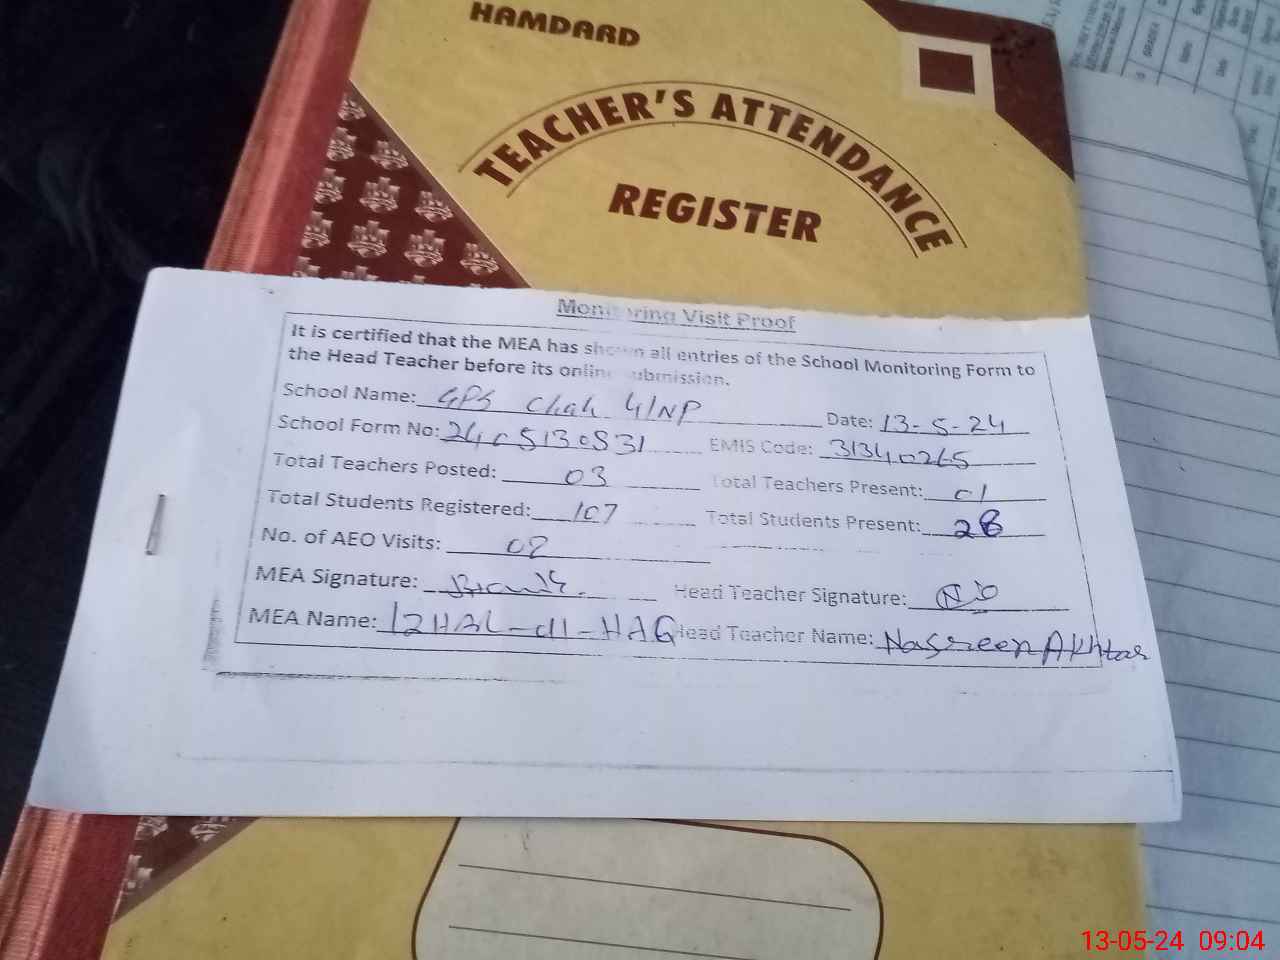 HAMDARD
TEACHER'S ATTENDANCE
REGISTER
Monitoring Visit Proof
It is certified that the MEA has shown all entries of the School Monitoring Form to
the Head Teacher before its online submission.
School Name: GPS Chak 41NP Date: 13-5-24
School Form No: 2405130831 EMIS Code: 31340265
Total Teachers Posted: 03 Total Teachers Present: 01
Total Students Registered: 107 Total Students Present: 28
No. of AEO Visits: 02
MEA Signature: Head Teacher Signature:
MEA Name: IZHAL-ul-HAQ Head Teacher Name: Nasreen Akhtar
13-05-24 09:04